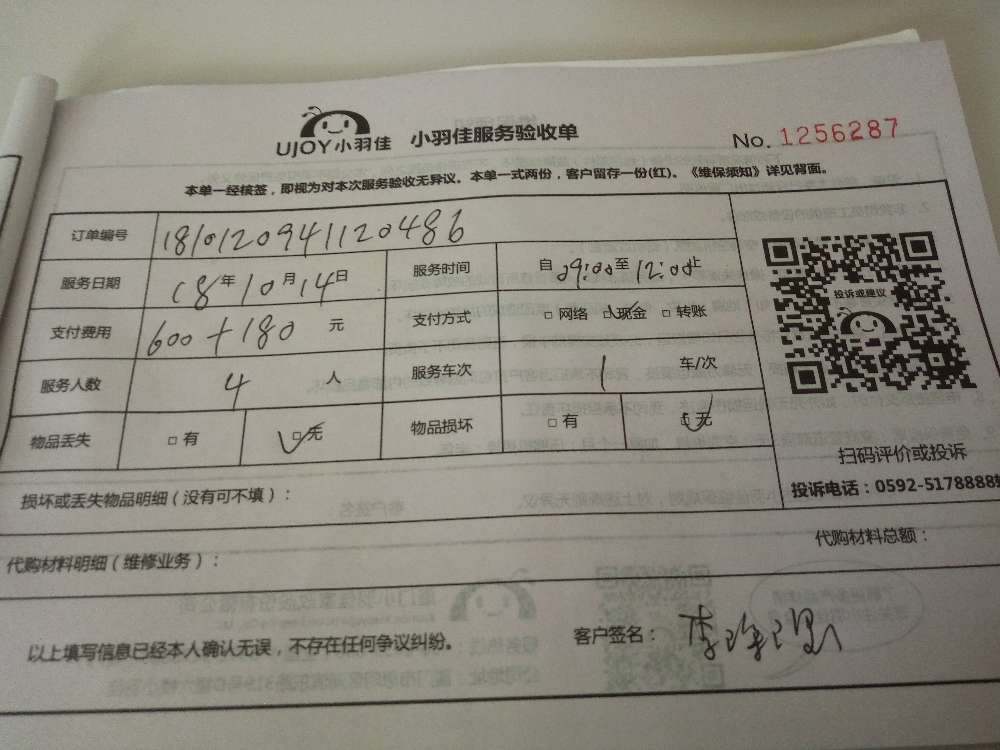 UJOY小羽佳 小羽佳服务验收单 No. 1256287
本单一经核签，即视为对本次服务验收无异议。本单一式两份，客户留存一份(红)。《维保须知》详见背面。
订单编号 1810120941120486
服务日期 18年10月14日 服务时间 自09:00至12:00止
支付费用 600+180 元 支付方式 □ 网络 ☑现金 □ 转账
服务人数 4 人 服务车次 1 车/次
物品丢失 □ 有 ☑无 物品损坏 □ 有 ☑无
投诉或建议
扫码评价或投诉
投诉电话：0592-5178888
损坏或丢失物品明细（没有可不填）：
代购材料明细（维修业务）： 代购材料总额：
以上填写信息已经本人确认无误，不存在任何争议纠纷。 客户签名：李